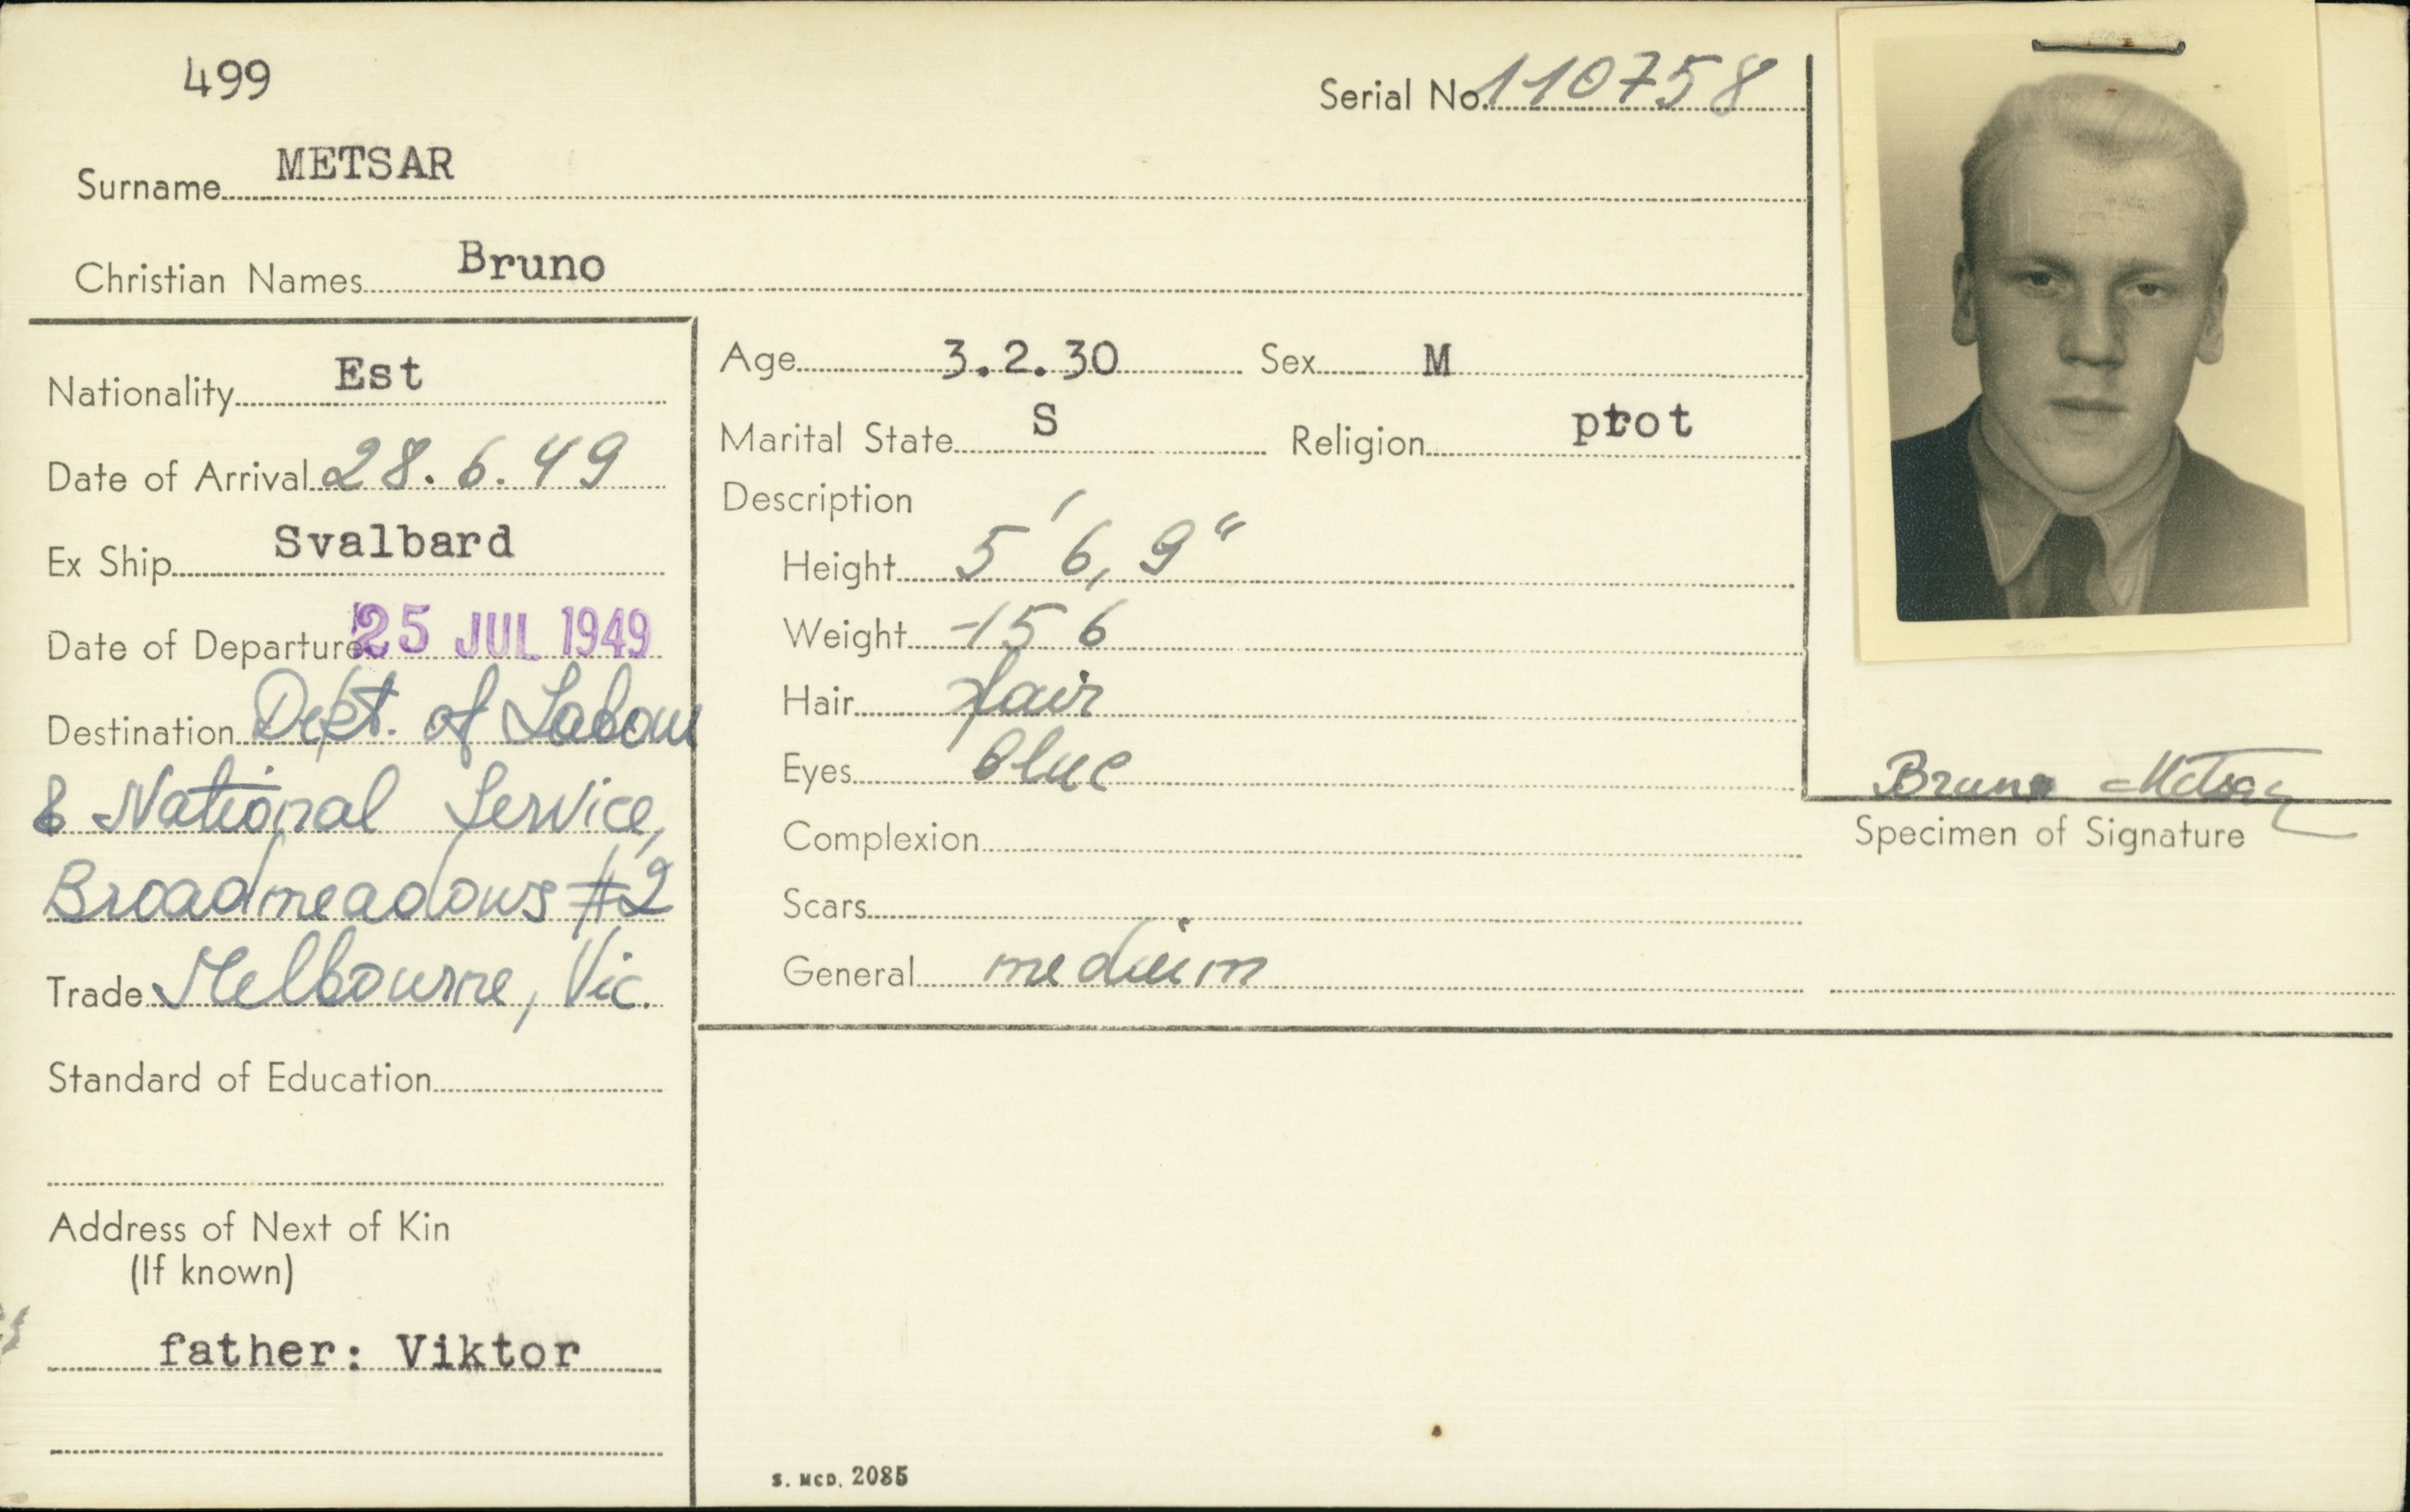 499
Serial No. 110758
Surname METSAR
Christian Names Bruno
Nationality Est
Date of Arrival 28.6.49
Ex Ship Svalbard
Date of Departure 25 JUL 1949
Destination Dept. of Labour
& National Service,
Broadmeadows #2
Trade Melbourne, Vic.
Standard of Education
Address of Next of Kin
(If known)
father: Viktor
Age 3.2.30 Sex M
Marital State S Religion prot
Description
Height 5' 6,9"
Weight 156
Hair fair
Eyes blue
Complexion
Scars
General medium
Bruno Metsar
Specimen of Signature
S. McD. 2085